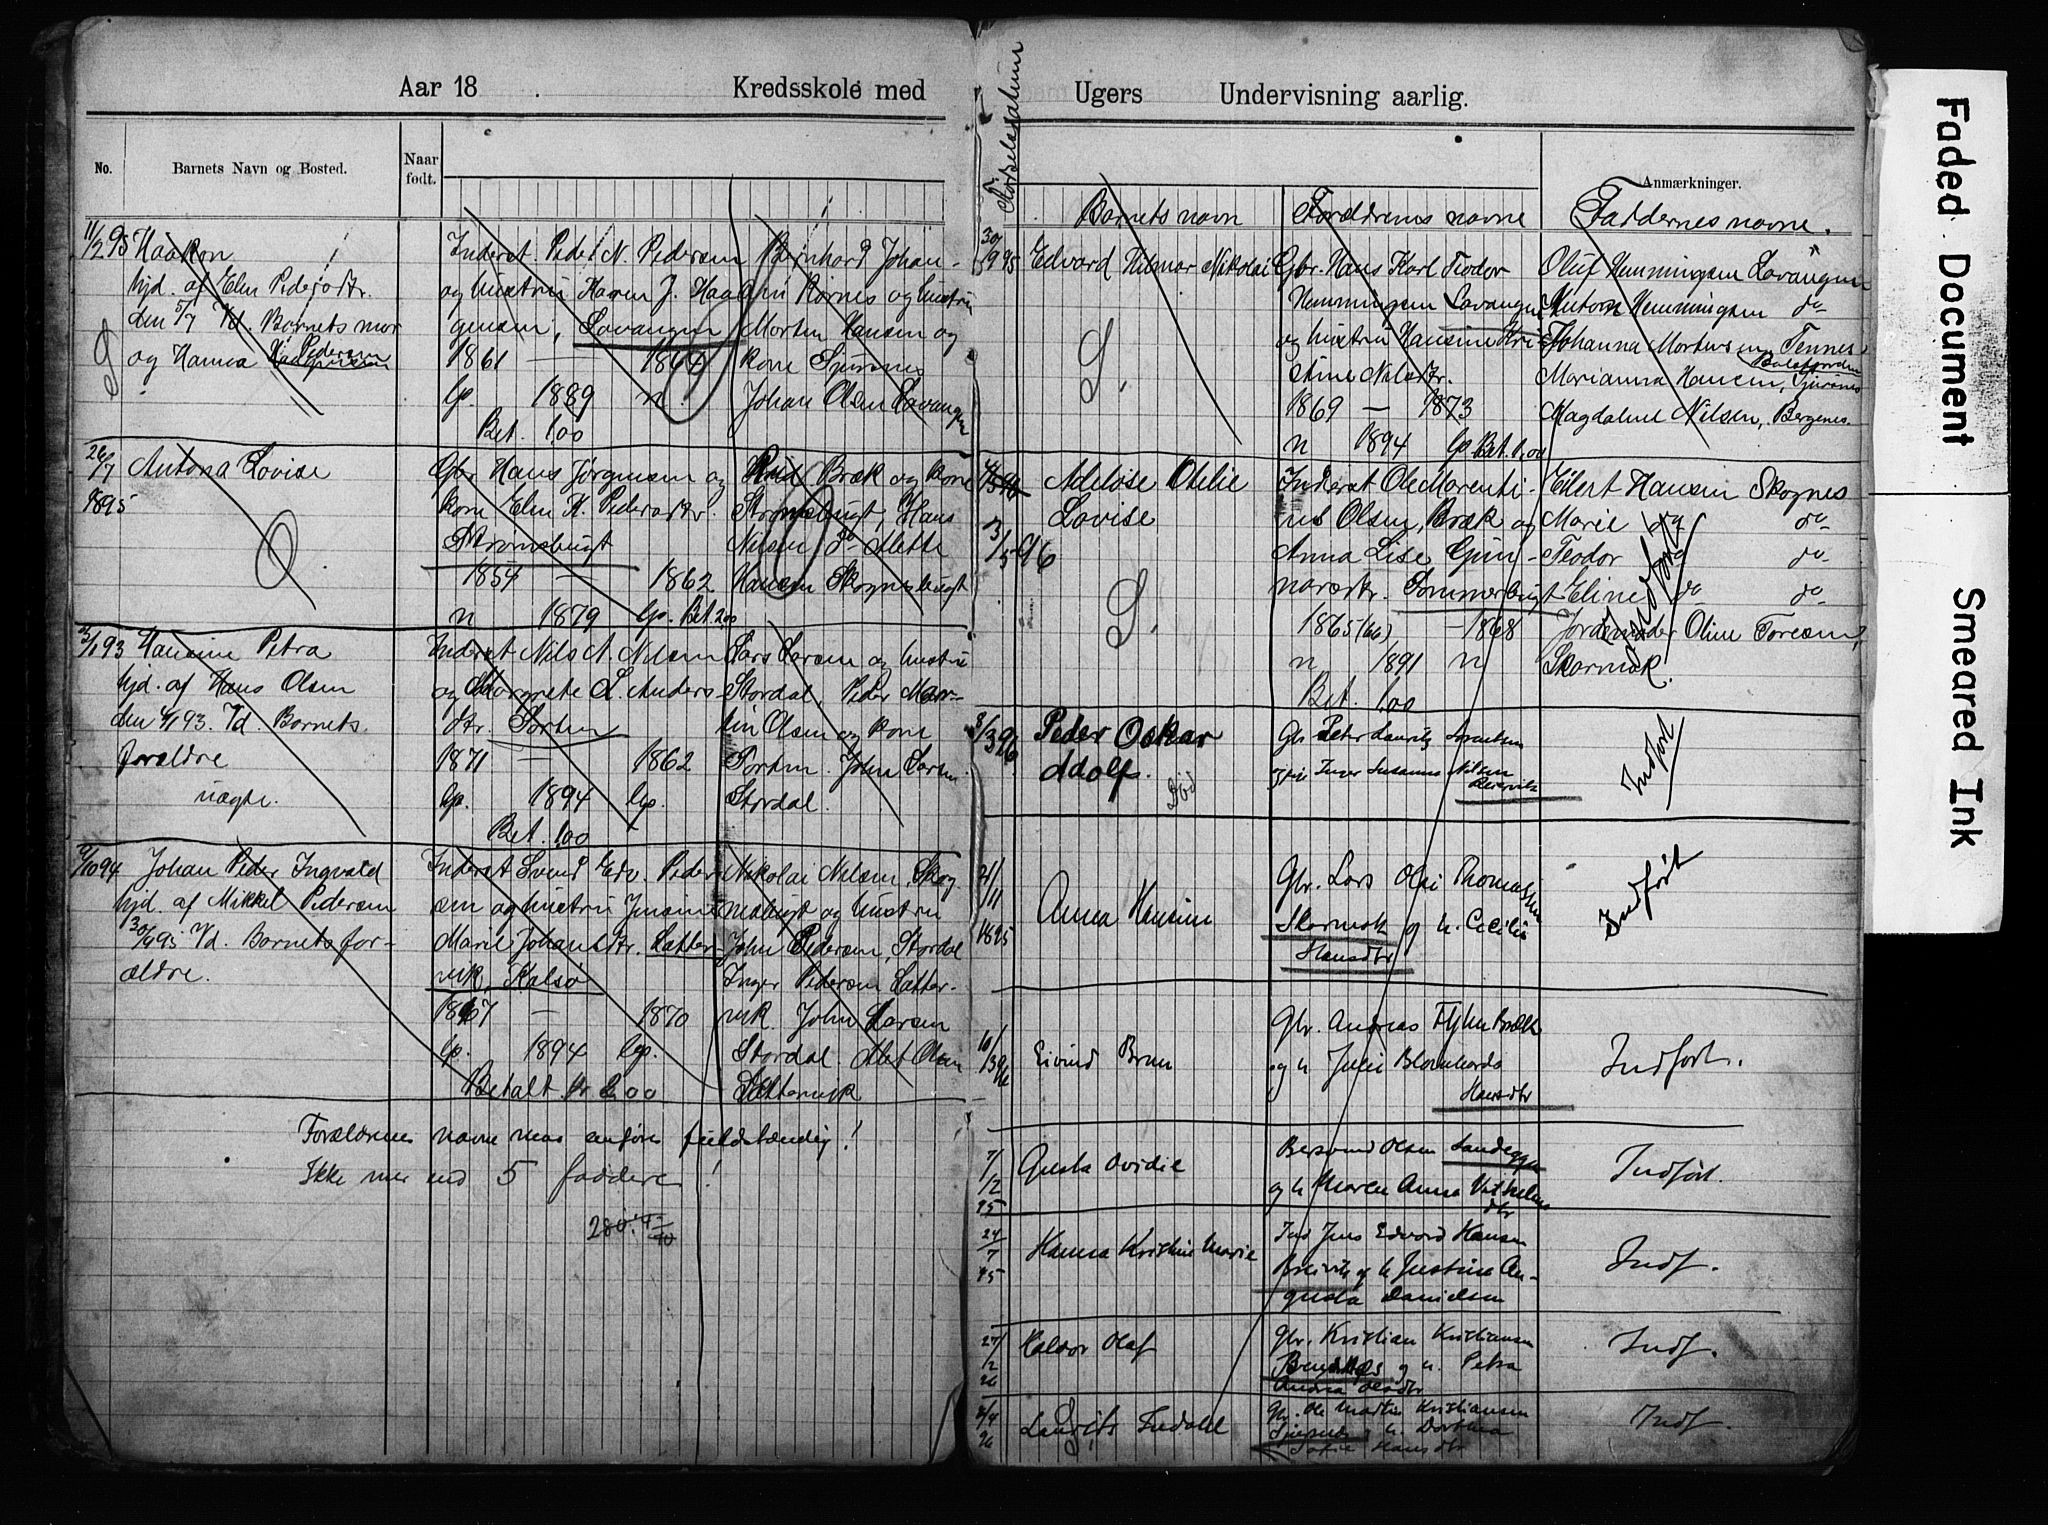 Aar 18 Kredsskole med
No. Barnets Navn og Bosted. Naar født.
11/2 95 Haakon
hjd. af Elen Pedersdtr.
den 5/7 Vd. Barnets mor
og Hanna Pedersen
Inderst. Peder N. Pedersen
og hustru Karen J. Haa-
gensen, Lavangen
1861 — 1864
lp. 1889 n.
Bet. 1,00
Bernhard Johan-
sen Kornes og hustru
Morten Hansen og
kone Sjursnes
Johan Olsen Lavangen
26/7 1895 Antona Lovise
Gbr. Hans Jørgensen og
kone Elen K. Pedersdtr.
Strømsbugt
1854 — 1862
n 1879 lp. Bet. 2,00
Bræk og kone
Strømsbugt, Hans
Nilsen do Mette
Hansen Skognesbugt
Hansine Petra
hjd. af Hans Olsen
den 4/1 93. Vd. Barnets
forældre
uægte.
Inderst Nils N. Nilsen
og Margrete L. Anders-
dtr. Sorten
1871 — 1862
lp. 1894 lp.
Bet. 1,00
Lars Larsen og hustru
Stordal. Peder Mar-
tin Olsen og kone
Sorten. John Larsen
Stordal.
9/10 94 Johan Peder Ingvald
hjd. af Mikkel Pedersen
30/9 95 Vd. Barnets for-
ældre.
Inderst Svend Edv. Peder-
sen og hustru Jensine
Marie Johansdtr. Latter-
vik, Kalsø
1867 — 1870
lp. 1894 lp.
Betalt kr 2,00
Nikolai Nilsen, Skog-
nesbugt og hustru
John Pedersen, Stordal
Inger Pedersen Latter-
vik. John Larsen
Stordal. Alet Olsen
Lattervik
Forældrenes navne maa anføres fuldstændig!
Ikke mer end 5 faddere!
Ugers Undervisning aarlig.
Fødselsdatum
Barnets navn Forældrenes navne Anmærkninger.
Faddernes navne.
30/9 95 Edvard Hilmar Nikolai
Gbr. Hans Karl Teodor
Hemmingsen Lavangen
og hustru Hansine Kri-
stine Nilsdtr.
1869 — 1873
n 1894 lp. Bet. 1,00
Oluf Hemmingsen Lavangen
Anton Hemmingsen do
Johanna Mortensen Tennes
Balsfjorden
Marianna Hansen, Sjursnes
Magdalene Nilsen, Bergenes.
L.
3/5 96 Adeløse Otelie
Lovise
L.
Inderst Ole Marenti-
nus Olsen, Bræk og
Anna Lise Gun-
narsdtr. Sommerbugt
1865 (66), — 1868
n 1891 n
Bet. 1,00
Eilert Hansen Skognes
Marie do do
Teodor do do
Eline do do
Jordemoder Oline Toresen,
Skarmok.
Indført
8/3 96 Peder Oskar
Adolf.
Død
Gbr Peter Laurits
og Inger Susanna Nilsen
Indført
21/11 1895 Anna Hansine
Gbr. Lars Olai Thomassen
Skarmok og h. Cecilie
Hansdtr
Indført
10/3 96 Eivind Brun
Gbr. Andreas
og h Julie
Hansdtr
Indført.
7/12 95 Gusta Ovidie
Bersvend Olsen Sandeggen
og h Maren Anna Vilhelms
dtr
Indført.
24/7 95 Hanna Kristine Marie
Ind Jens Edvard Hansen
Breivik og h Justine Au-
gusta Danielsen
Indf.
27/2 96 Haldor Olaf
Gbr. Kristian Kristiansen
og h. Petra
Andrea Olsdtr
Indf.
2/4 96 Laurits Indahl
Gbr. Ole Martin Kristiansen
Sjursnes, h. Dorthea
Sofie Hansdtr
Indf.
Faded Document
Smeared Ink